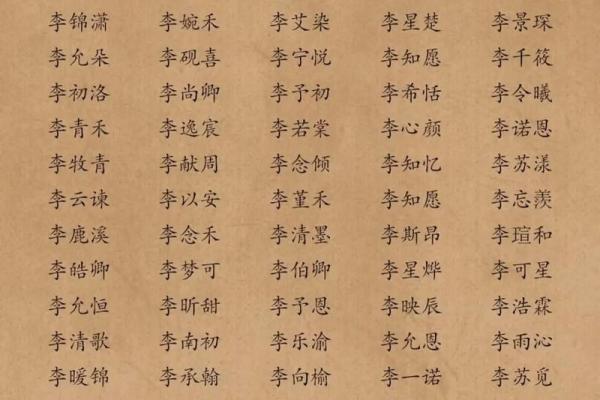 李锦潇 李婉禾 李艾染 李星楚 李景琛
李允朵 李砚喜 李宁悦 李知愿 李千筱
李初洛 李尚卿 李予初 李希恬 李令曦
李青禾 李逸宸 李若棠 李心颜 李诺恩
李牧青 李献周 李念倾 李知忆 李苏漾
李云谏 李以安 李堇禾 李知愿 李忘羡
李鹿溪 李念禾 李清墨 李斯昂 李瑄和
李皓卿 李梦可 李伯卿 李星烨 李可星
李允恒 李昕甜 李予恩 李映辰 李浩霖
李清歌 李南初 李乐渝 李允恩 李雨沁
李暖锦 李承翰 李向榆 李一诺 李苏觅